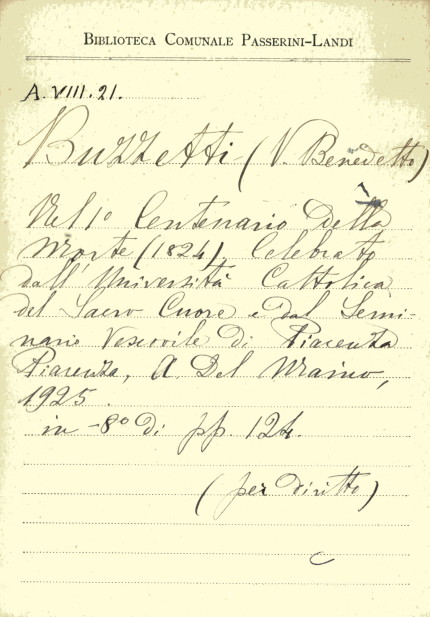 BIBLIOTECA COMUNALE PASSERINI-LANDI
A. VIII. 21.
Buzzetti (V. Benedetto)
Nel 1º Centenario Della
Morte (1824), Celebrato
dall'Università Cattolica
del Sacro Cuore e dal Semi-
nario Vescovile di Piacenza
Piacenza, A. Del Maino,
1925.
in -8º di pp. 124.
(per diritto)